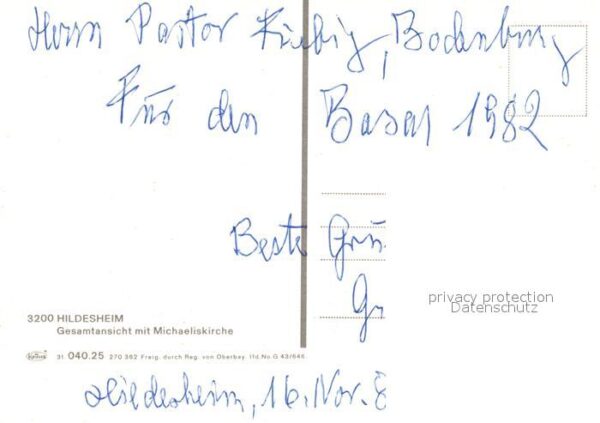 Herrn Pastor Fiebig, Bodenburg
Für den Basar 1982
Beste Grü
G
privacy protection
Datenschutz
3200 HILDESHEIM
Gesamtansicht mit Michaeliskirche
31 040.25 270 382 Freig. durch Reg. von Oberbay. lfd.No G 43/646.
Hildesheim, 16. Nov. 8